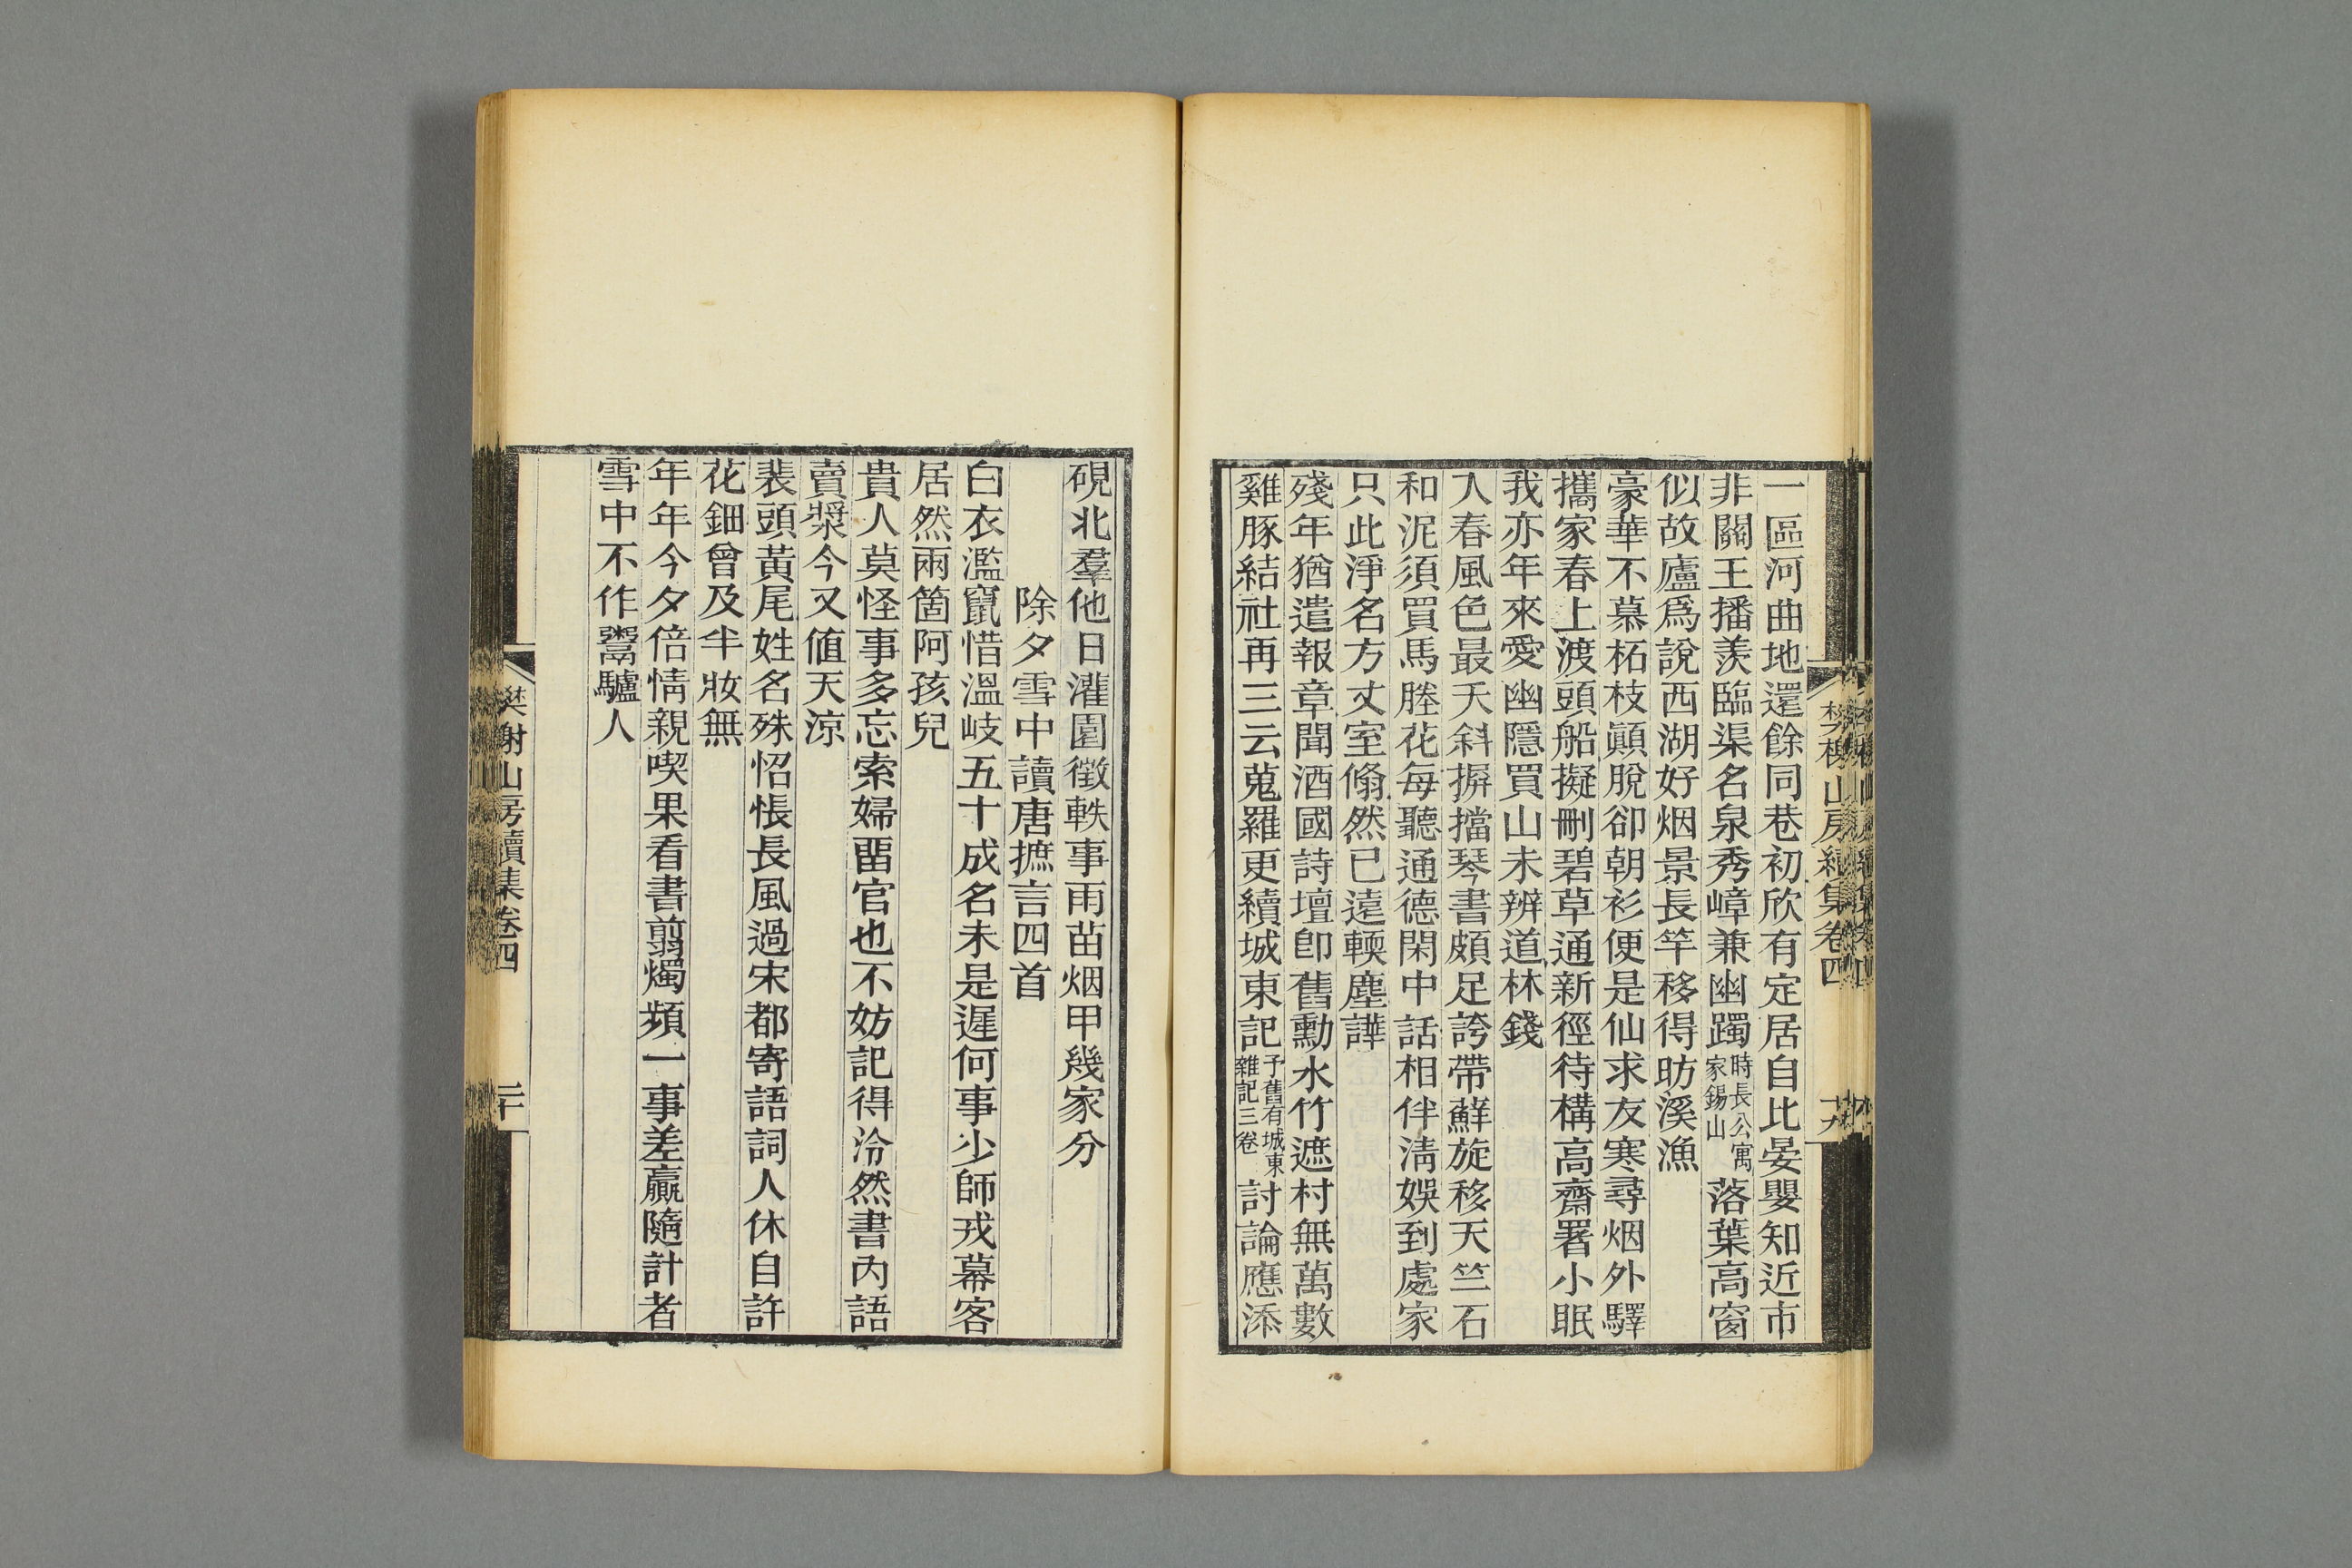 一區河曲地還餘同巷初欣有定居自比晏嬰知近市
非關王播羨臨渠名泉秀嶂兼幽躅時長公寓家錫山落葉高窗
似故廬爲說西湖好烟景長竿移得昉溪漁
豪華不慕柘枝顚脫卻朝衫便是仙求友寒尋烟外驛
攜家春上渡頭船擬刪碧草通新徑待構高齋署小眠
我亦年來愛幽隱買山未辨道林錢
入春風色最夭斜摒擋琴書頗足誇帶蘚旋移天竺石
和泥須買馬塍花每聽通德閑中話相伴淸娛到處家
只此淨名方丈室翛然已遠輭塵譁
殘年猶遣報章聞酒國詩壇卽舊勳水竹遮村無萬數
雞豚結社再三云蒐羅更續城東記予舊有城東雜記三卷討論應添
樊榭山房續集卷四
硯北羣他日灌園徵軼事雨苗烟甲幾家分
除夕雪中讀唐摭言四首
白衣濫竄惜溫岐五十成名未是遲何事少師戎幕客
居然兩箇阿孩兒
貴人莫怪事多忘索婦畱官也不妨記得汵然書內語
賣漿今又値天涼
裴頭黃尾姓名殊怊悵長風過宋都寄語詞人休自許
花鈿曾及半妝無
年年今夕倍情親喫果看書翦燭頻一事差贏隨計者
雪中不作鬻驢人
樊榭山房續集卷四
二十